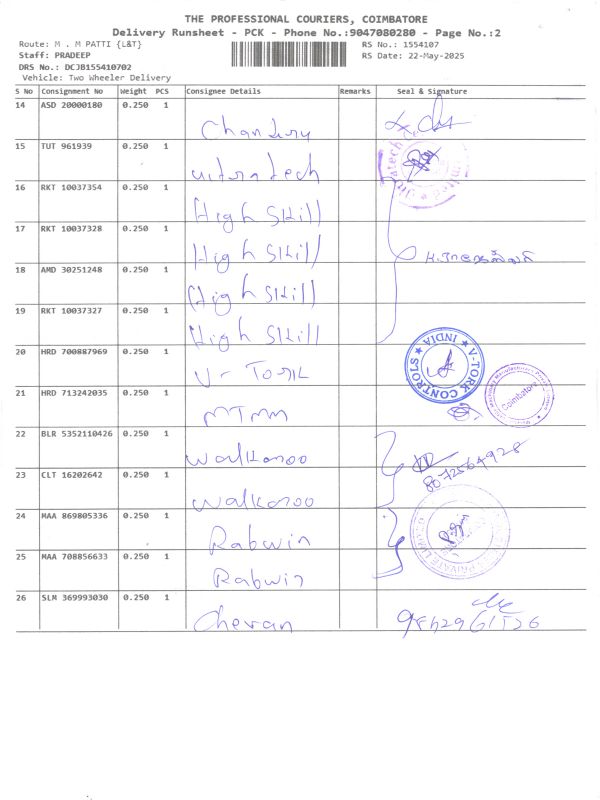 THE PROFESSIONAL COURIERS, COIMBATORE
Delivery Runsheet - PCK - Phone No.:9047080280 - Page No.:2
Route: M . M PATTI {L&T}
RS No.: 1554107
Staff: PRADEEP
RS Date: 22-May-2025
DRS No.: DCJB155410702
Vehicle: Two Wheeler Delivery
S No Consignment No Weight PCS Consignee Details Remarks Seal & Signature
14 ASD 20000180 0.250 1
15 TUT 961939 0.250 1
ultratech
16 RKT 10037354 0.250 1
High Skill
17 RKT 10037328 0.250 1
High Skill
18 AMD 30251248 0.250 1
High Skill
19 RKT 10037327 0.250 1
High Skill
20 HRD 700887969 0.250 1
V-Tork
V-TORK CONTROLS ★ INDIA ★
21 HRD 713242035 0.250 1
MTMM
Coimbatore
22 BLR 5352110426 0.250 1
Walkaroo
8072564928
23 CLT 16202642 0.250 1
Walkaroo
24 MAA 869805336 0.250 1
Rabwin
25 MAA 708856633 0.250 1
Rabwin
26 SLM 369993030 0.250 1
Cheran